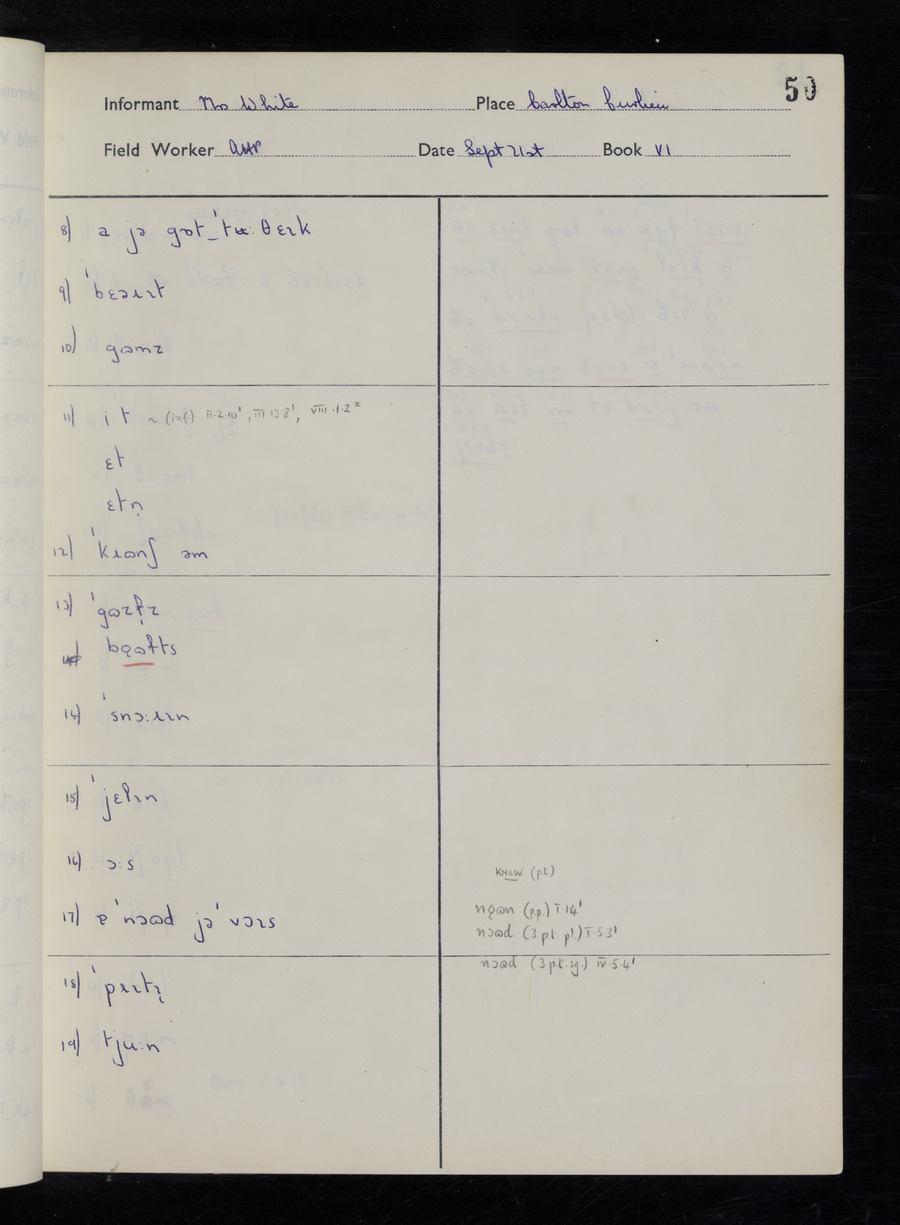 50
Informant Mrs White Place Carlton Curlieu
Field Worker AHP Date Sept 21st Book VI
8) a jə gɒt_'tɪu:θɛɪk
9) 'bɛəɹɪt
10) gɷmz
11) ɪt ~ (inf) II·2·10¹, III·13·8¹, VIII·1·2²
ɛt
ɛtn̩
12) 'kɹɷnʃ əm
13) 'gɷzɫz
bɷɫts
14) 'snɔ:ɹɪn
15) 'jɛlɪn
16) ɔ:s
17) ɐ 'nɔɷd jə' vɔɪs
KNOW (p.t.)
nɷn (p.p.) I·14¹
nɔɷd (3 pt. pl.) I·5·3¹
nɔɷd (3 p.t. sg.) IV·5·4¹
18) 'pɹɪtɪ
19) tju:n